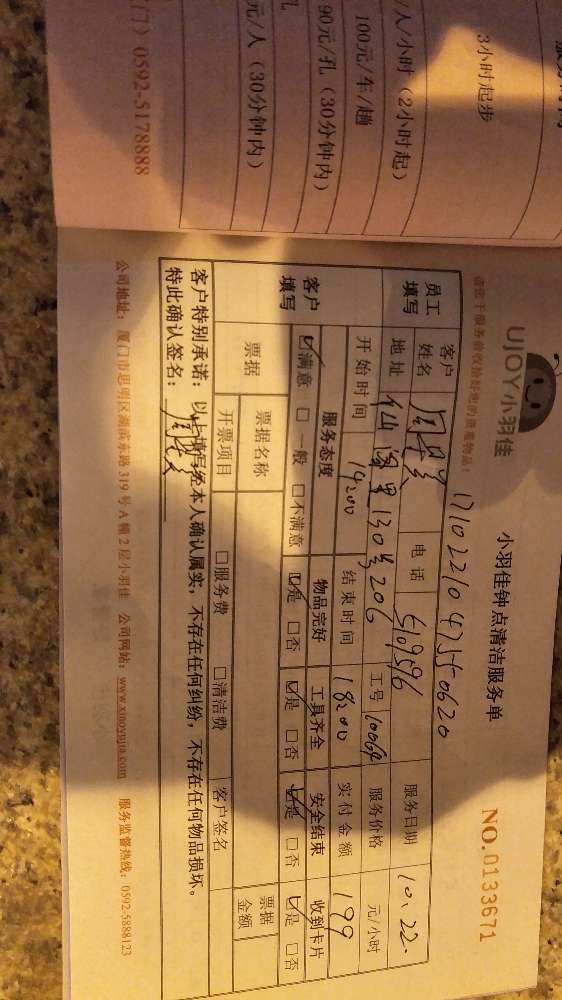 3小时起步
/人/小时（2小时起）
100元/车/趟
90元/孔（30分钟内）
孔
元/人（30分钟内）
门）0592-5178888
UJOY小羽佳
小羽佳钟点清洁服务单
NO.0133671
17102210475506​20
员工填写
客户姓名
电话 5109596
服务日期 10.22.
地址 仙阁里130号206
工号 10069
服务价格 元/小时
开始时间 14:00
结束时间 18:00
实付金额 199
客户填写
服务态度 物品完好 工具齐全 安全结束 收到卡片
☑满意 □一般 □不满意 ☑是 □否 ☑是 □否 ☑是 □否 ☑是 □否
票据 票据名称 票据金额
开票项目 □服务费 □清洁费 客户签名
客户特别承诺：以上填写经本人确认属实，不存在任何纠纷，不存在任何物品损坏。
特此确认签名：
公司地址：厦门市思明区湖滨东路319号A幢2层小羽佳 公司网站：www.xiaoyujia.com 服务监督热线：0592.5888123